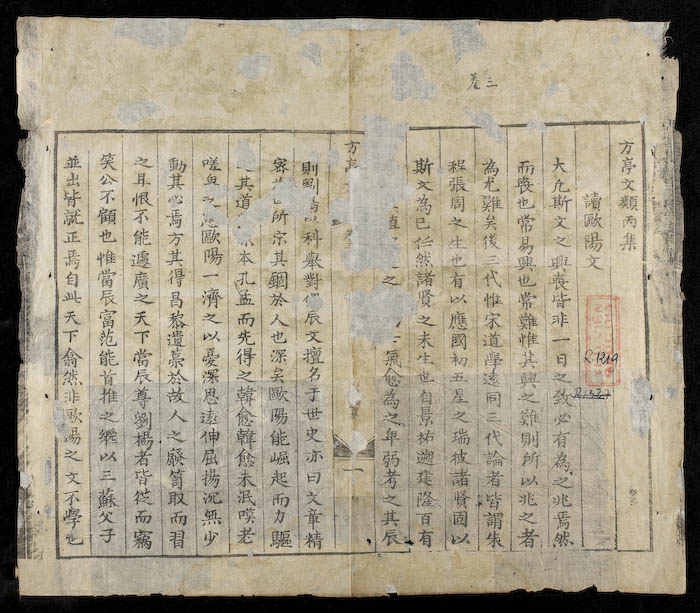 卷三
方亭文類丙集
讀歐陽文
R.1219
R.1327
大凡斯文之興喪皆非一日之致必有為之兆焉然
而喪也常易興也常難惟其興之難則所以兆之者
為尤難矣後三代惟宋道學遂同三代論者皆謂朱
程張周之生也有以應國初五星之瑞彼諸賢固以
斯文為己任然諸賢之未生也自景祐遡建隆百有
之氣愈為之卑弱考之其辰
方亭
一
則劉楊以科舉對偶辰文擅名于世史亦曰文章精
所宗其錮於人也深矣歐陽能崛起而力驅
其道本孔孟而先得之韓愈韓愈未泯嘆老
嗟卑之歐陽一濟之以憂深思遠伸屈揚沉無少
動其心焉方其得昌黎遺藁於故人之廢笥取而習
之耳恨不能遽廣之天下當辰尊劉楊者皆從而竊
笑公不顧也惟當辰富范能首推之繼以三蘇父子
並出皆就正焉自此天下翕然非歐陽之文不學也